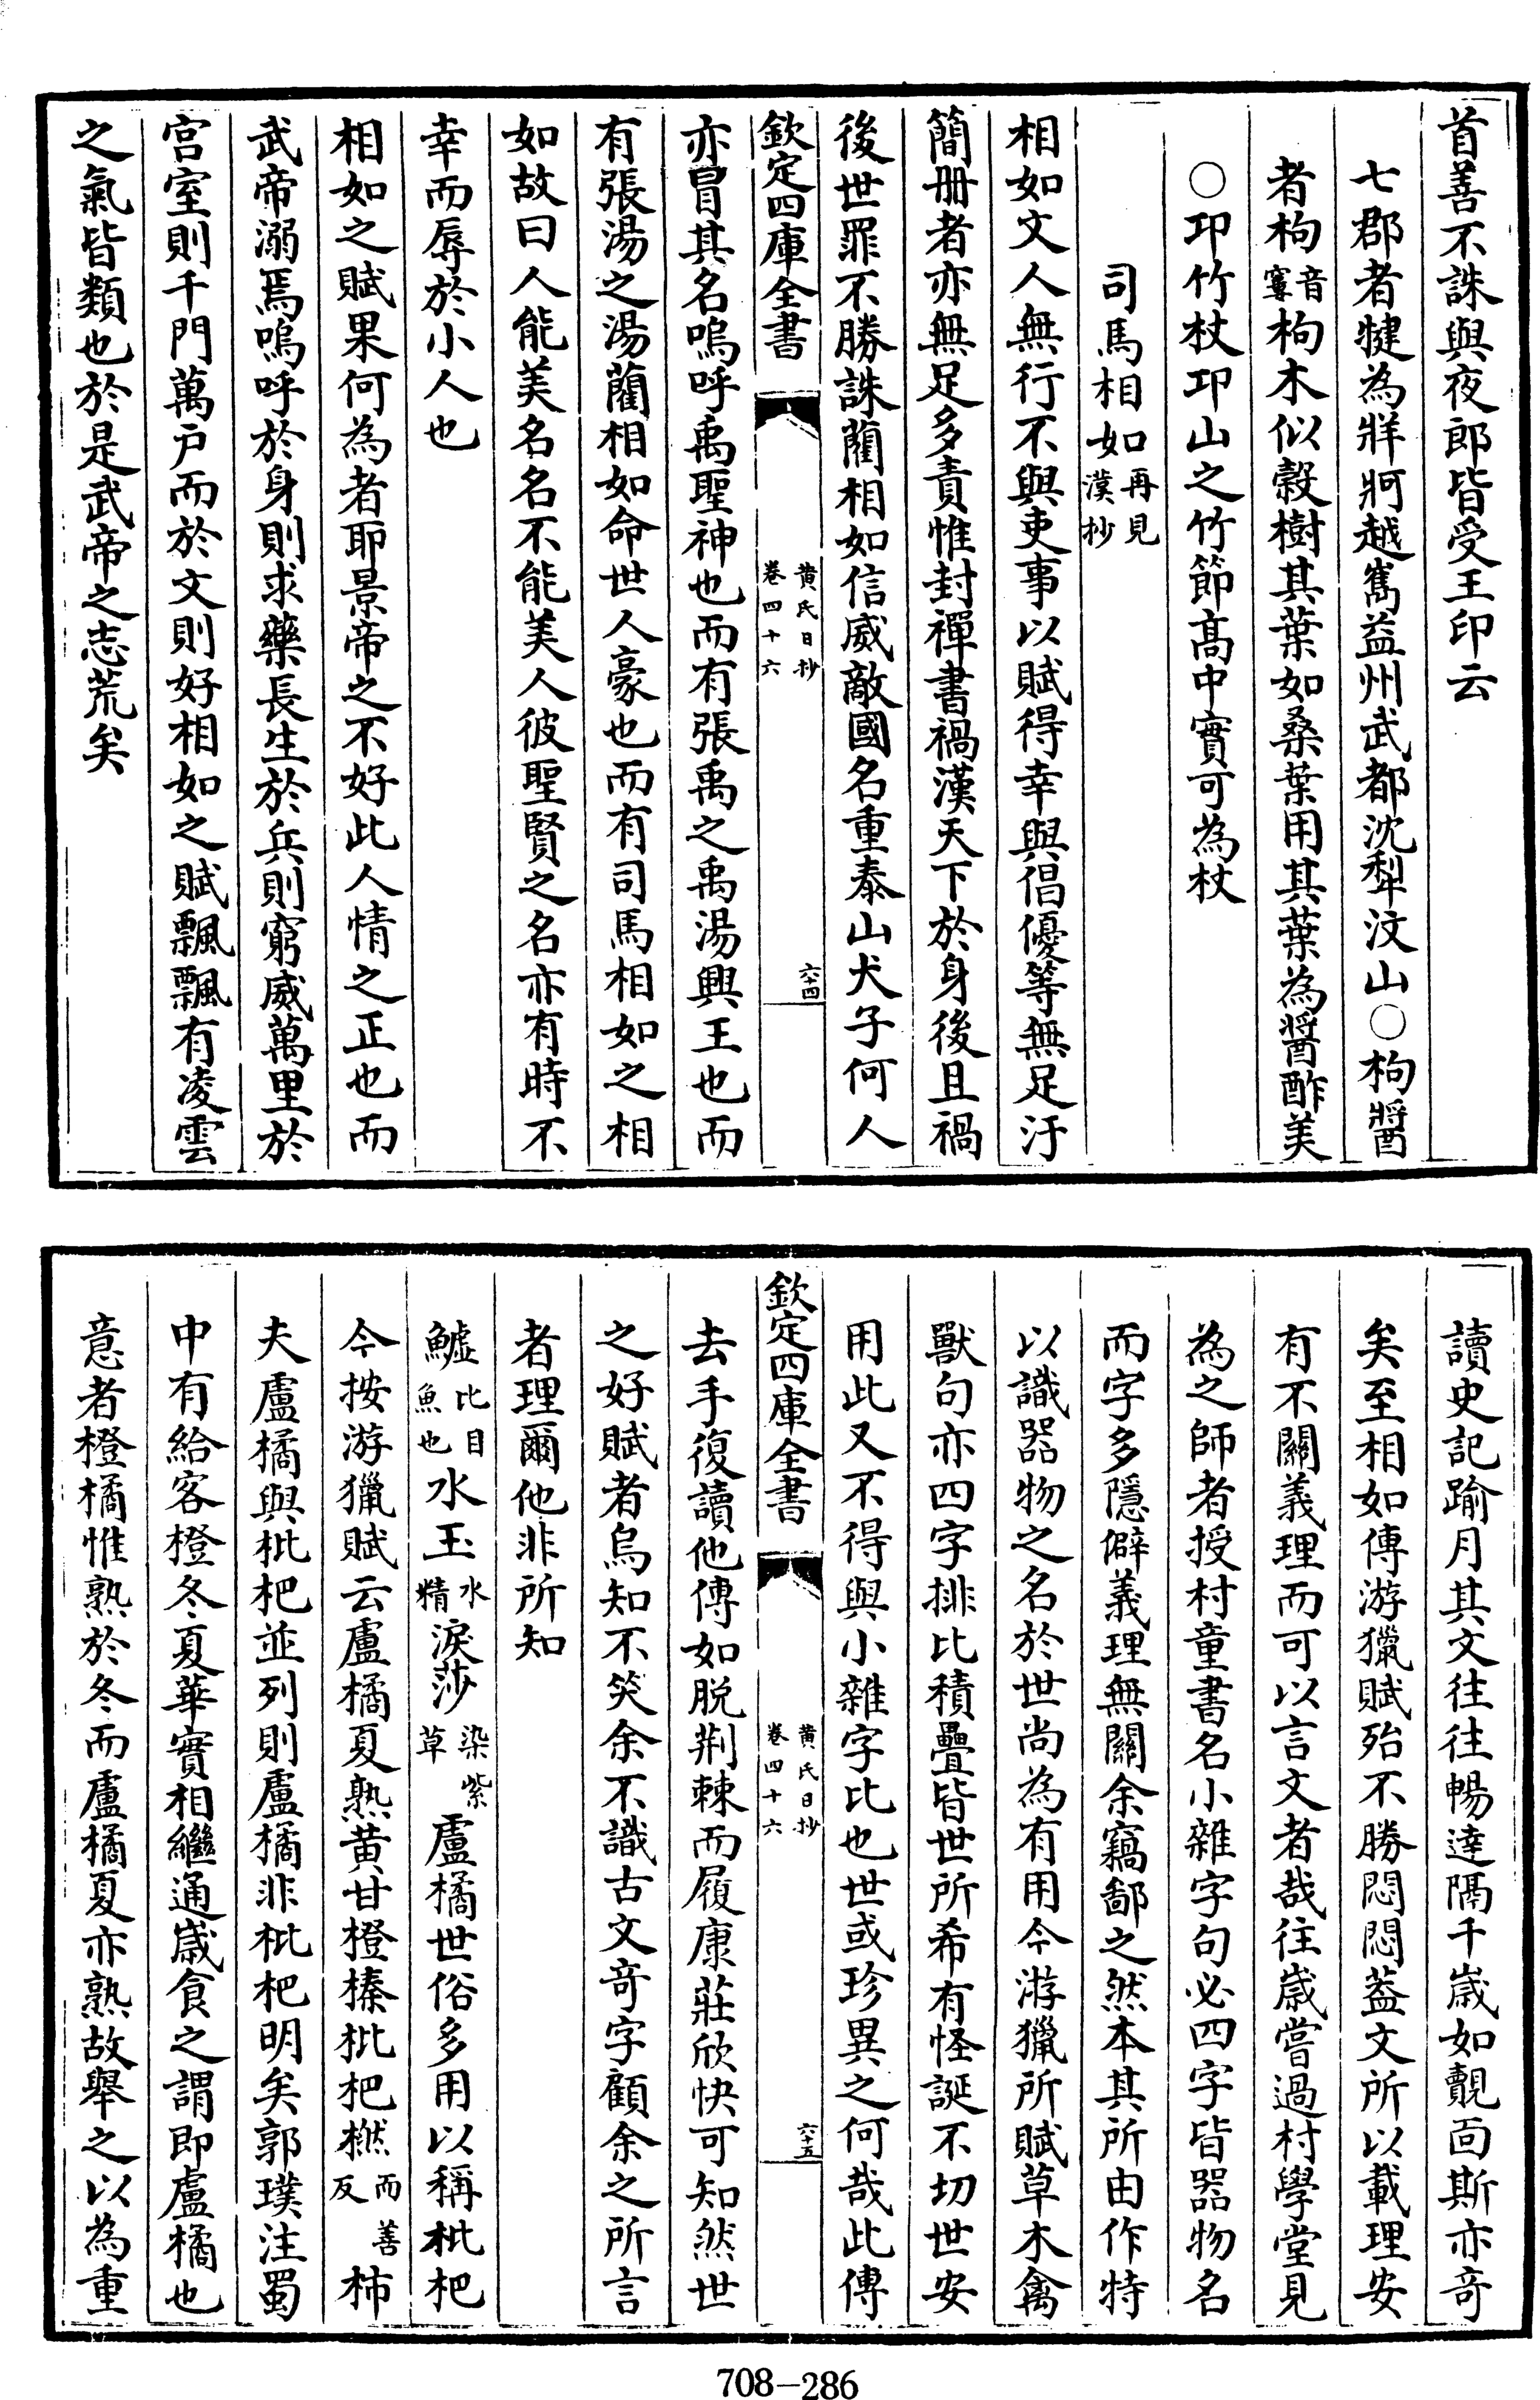 首善不誅與夜郎皆受王印云
七郡者犍為牂牁越嶲益州武都沈犁汶山○枸醬
者枸音窶枸木似榖樹其葉如桑葉用其葉為醬酢美
○邛竹杖邛山之竹節髙中實可為杖
司馬相如再見漢抄
相如文人無行不與吏事以賦得幸與倡優等無足汙
簡册者亦無足多責惟封禪書禍漢天下於身後且禍
後世罪不勝誅藺相如信威敵國名重泰山犬子何人
欽定四庫全書
黄氏日抄
卷四十六
六十四
亦冒其名嗚呼禹聖神也而有張禹之禹湯興王也而
有張湯之湯藺相如命世人豪也而有司馬相如之相
如故曰人能美名名不能美人彼聖賢之名亦有時不
幸而辱於小人也
相如之賦果何為者耶景帝之不好此人情之正也而
武帝溺焉嗚呼於身則求藥長生於兵則窮威萬里於
宫室則千門萬户而於文則好相如之賦飄飄有凌雲
之氣皆類也於是武帝之志荒矣
讀史記踰月其文往往暢達隔千歳如覿面斯亦竒
矣至相如傳游獵賦殆不勝悶悶葢文所以載理安
有不關義理而可以言文者哉往歳嘗過村學堂見
為之師者授村童書名小雜字句必四字皆器物名
而字多隱僻義理無關余竊鄙之然本其所由作特
以識器物之名於世尚為有用今游獵所賦草木禽
獸句亦四字排比積疊皆世所希有怪誕不切世安
用此又不得與小雜字比也世或珍異之何哉此傳
欽定四庫全書
黄氏日抄
卷四十六
六十五
去手復讀他傳如脱荆棘而履康莊欣快可知然世
之好賦者烏知不笑余不識古文竒字顧余之所言
者理爾他非所知
鱋比目魚也水玉水精淚莎染紫草盧橘世俗多用以稱枇杷
今按游獵賦云盧橘夏熟黄甘橙榛枇杷橪而善反柿
夫盧橘與枇杷並列則盧橘非枇杷明矣郭璞注蜀
中有給客橙冬夏華實相繼通歳食之謂即盧橘也
意者橙橘惟熟於冬而盧橘夏亦熟故舉之以為重
708－286